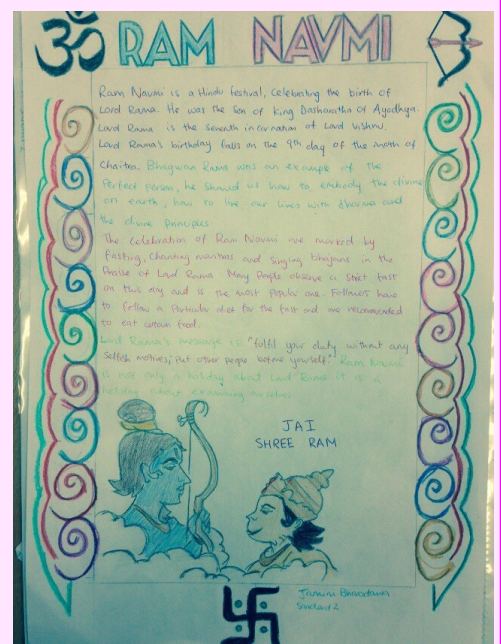 ॐ RAM NAVMI
Ram Navmi is a Hindu festival, Celebrating the birth of
Lord Rama. He was the Son of King Dasharatha of Ayodhya.
Lord Rama is the seventh incarnation of Lord Vishnu.
Lord Rama's birthday falls on the 9th day of the month of
Chaitra. Bhagwan Rama was an example of the
Perfect Person, he showed us how to embody the divine
on earth, how to live our lives with dharma and
the divine Principles
The Celebration of Ram Navmi are marked by
fasting, Chanting mantras and Singing bhajans in the
Praise of Lord Rama. Many People observe a strict fast
on this day and is the most Popular one. Followers have
to follow a Particular diet for the fast and are recommended
to eat certain food.
Lord Rama's message is "fulfil your duty without any
Selfish motives; Put other people before yourself". Ram Navmi
is not only a holiday about Lord Rama it is a
holiday about examining ourselves
JAI
SHREE RAM